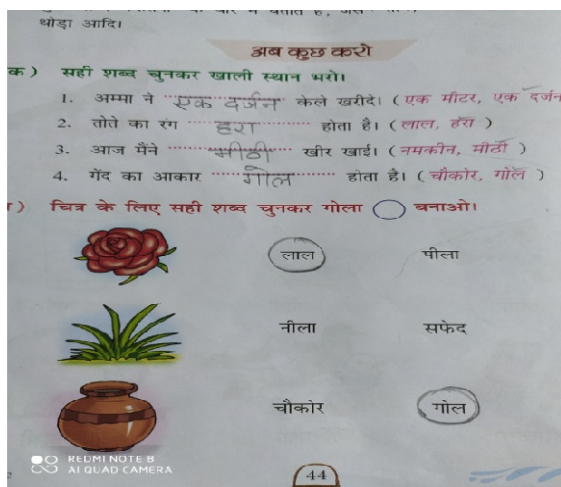 थोड़ा आदि।
अब कुछ करो
क) सही शब्द चुनकर खाली स्थान भरो।
1. अम्मा ने एक दर्जन केले खरीदे। (एक मीटर, एक दर्जन
2. तोते का रंग हरा होता है। (लाल, हरा)
3. आज मैंने मीठी खीर खाई। (नमकीन, मीठी)
4. गेंद का आकार गोल होता है। (चौकोर, गोल)
) चित्र के लिए सही शब्द चुनकर गोला ◯ बनाओ।
लाल पीला
नीला सफेद
चौकोर गोल
REDMI NOTE 8
AI QUAD CAMERA
44